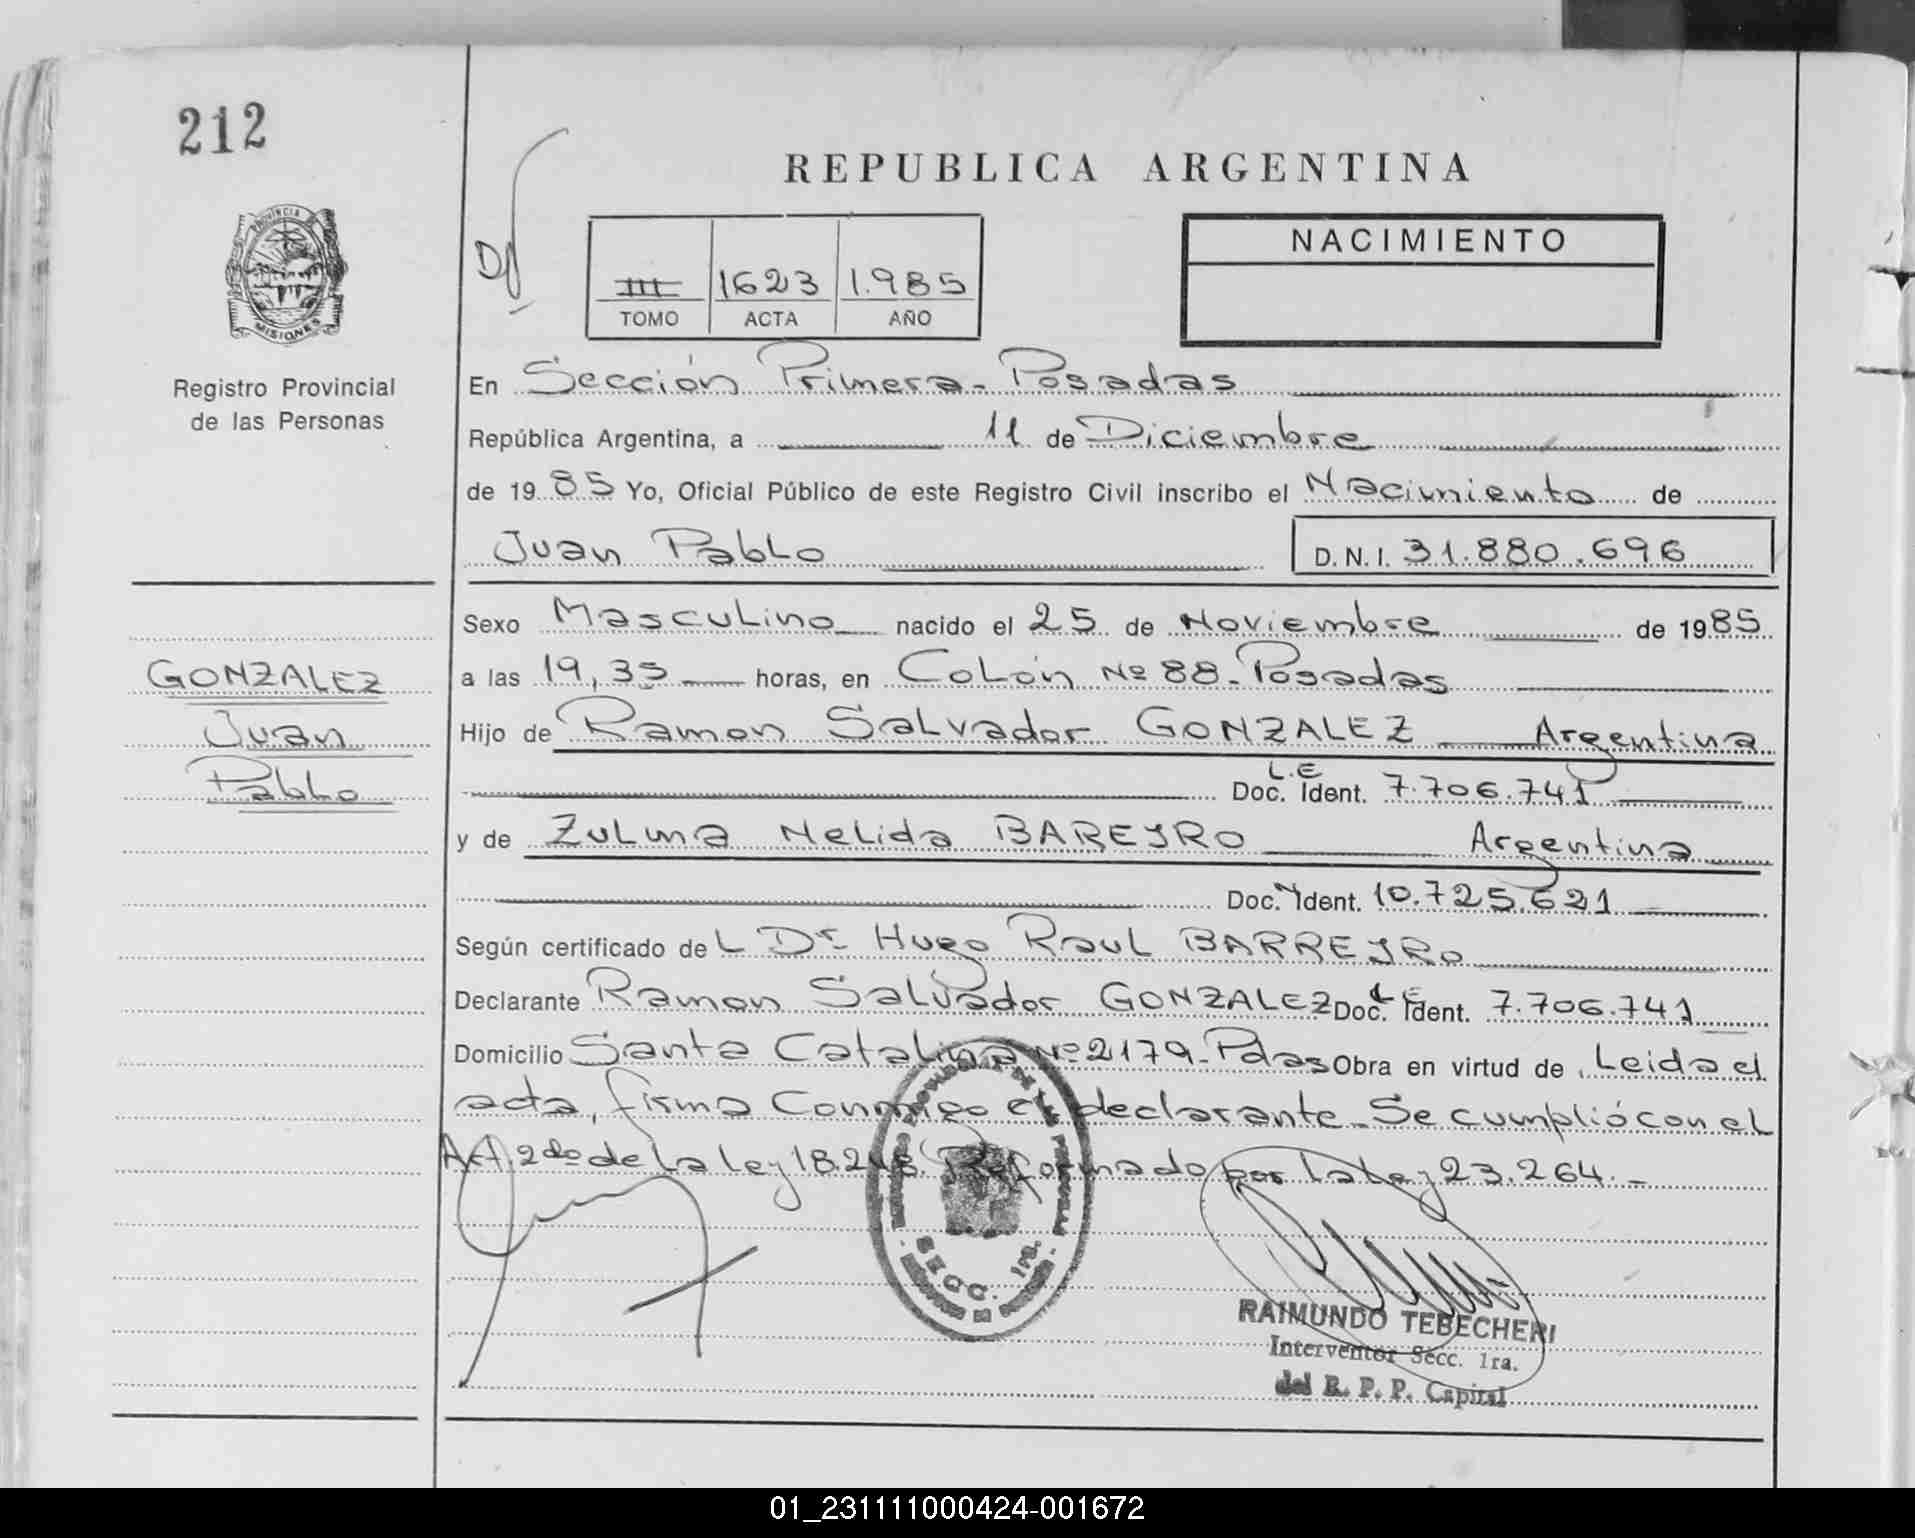 212
REPUBLICA ARGENTINA
PROVINCIA
MISIONES
III 1623 1.985
TOMO ACTA AÑO
NACIMIENTO
Registro Provincial
de las Personas
En Sección Primera - Posadas
República Argentina, a 11 de Diciembre
de 1985 Yo, Oficial Público de este Registro Civil inscribo el Nacimiento de
Juan Pablo D.N.I. 31.880.696
Sexo Masculino nacido el 25 de Noviembre de 1985
GONZALEZ
Juan
Pablo
a las 19,35 horas, en Colón Nº 88 - Posadas
Hijo de Ramon Salvador GONZALEZ Argentina
L.E
Doc. Ident. 7.706.741
y de Zulma Nelida BAREYRO Argentina
Doc. Ident. 10.725.621
Según certificado del Dr. Hugo Raul BARREYRO
Declarante Ramon Salvador GONZALEZ Doc. L.E Ident. 7.706.741
Domicilio Santa Catalina Nº 2179 - Pdas Obra en virtud de Leida el
acta, firma Conmigo el declarante - Se cumplió con el
Art. 2do de La Ley 18.248. Reformado por la Ley 23.264. -
SECC. 1ra.
RAIMUNDO TEBECHERI
Interventor Secc. 1ra.
del R. P. P. Capital
01_231111000424-001672